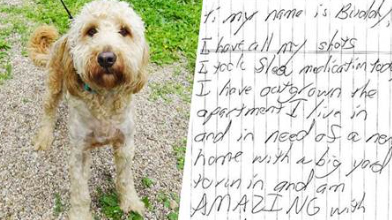 Hi my name is Buddy
I have all my shots
I took flea medication tod
I have outgrown the
apartment I live in
and in need of a ne
home with a big yard
to run in and am
AMAZING with